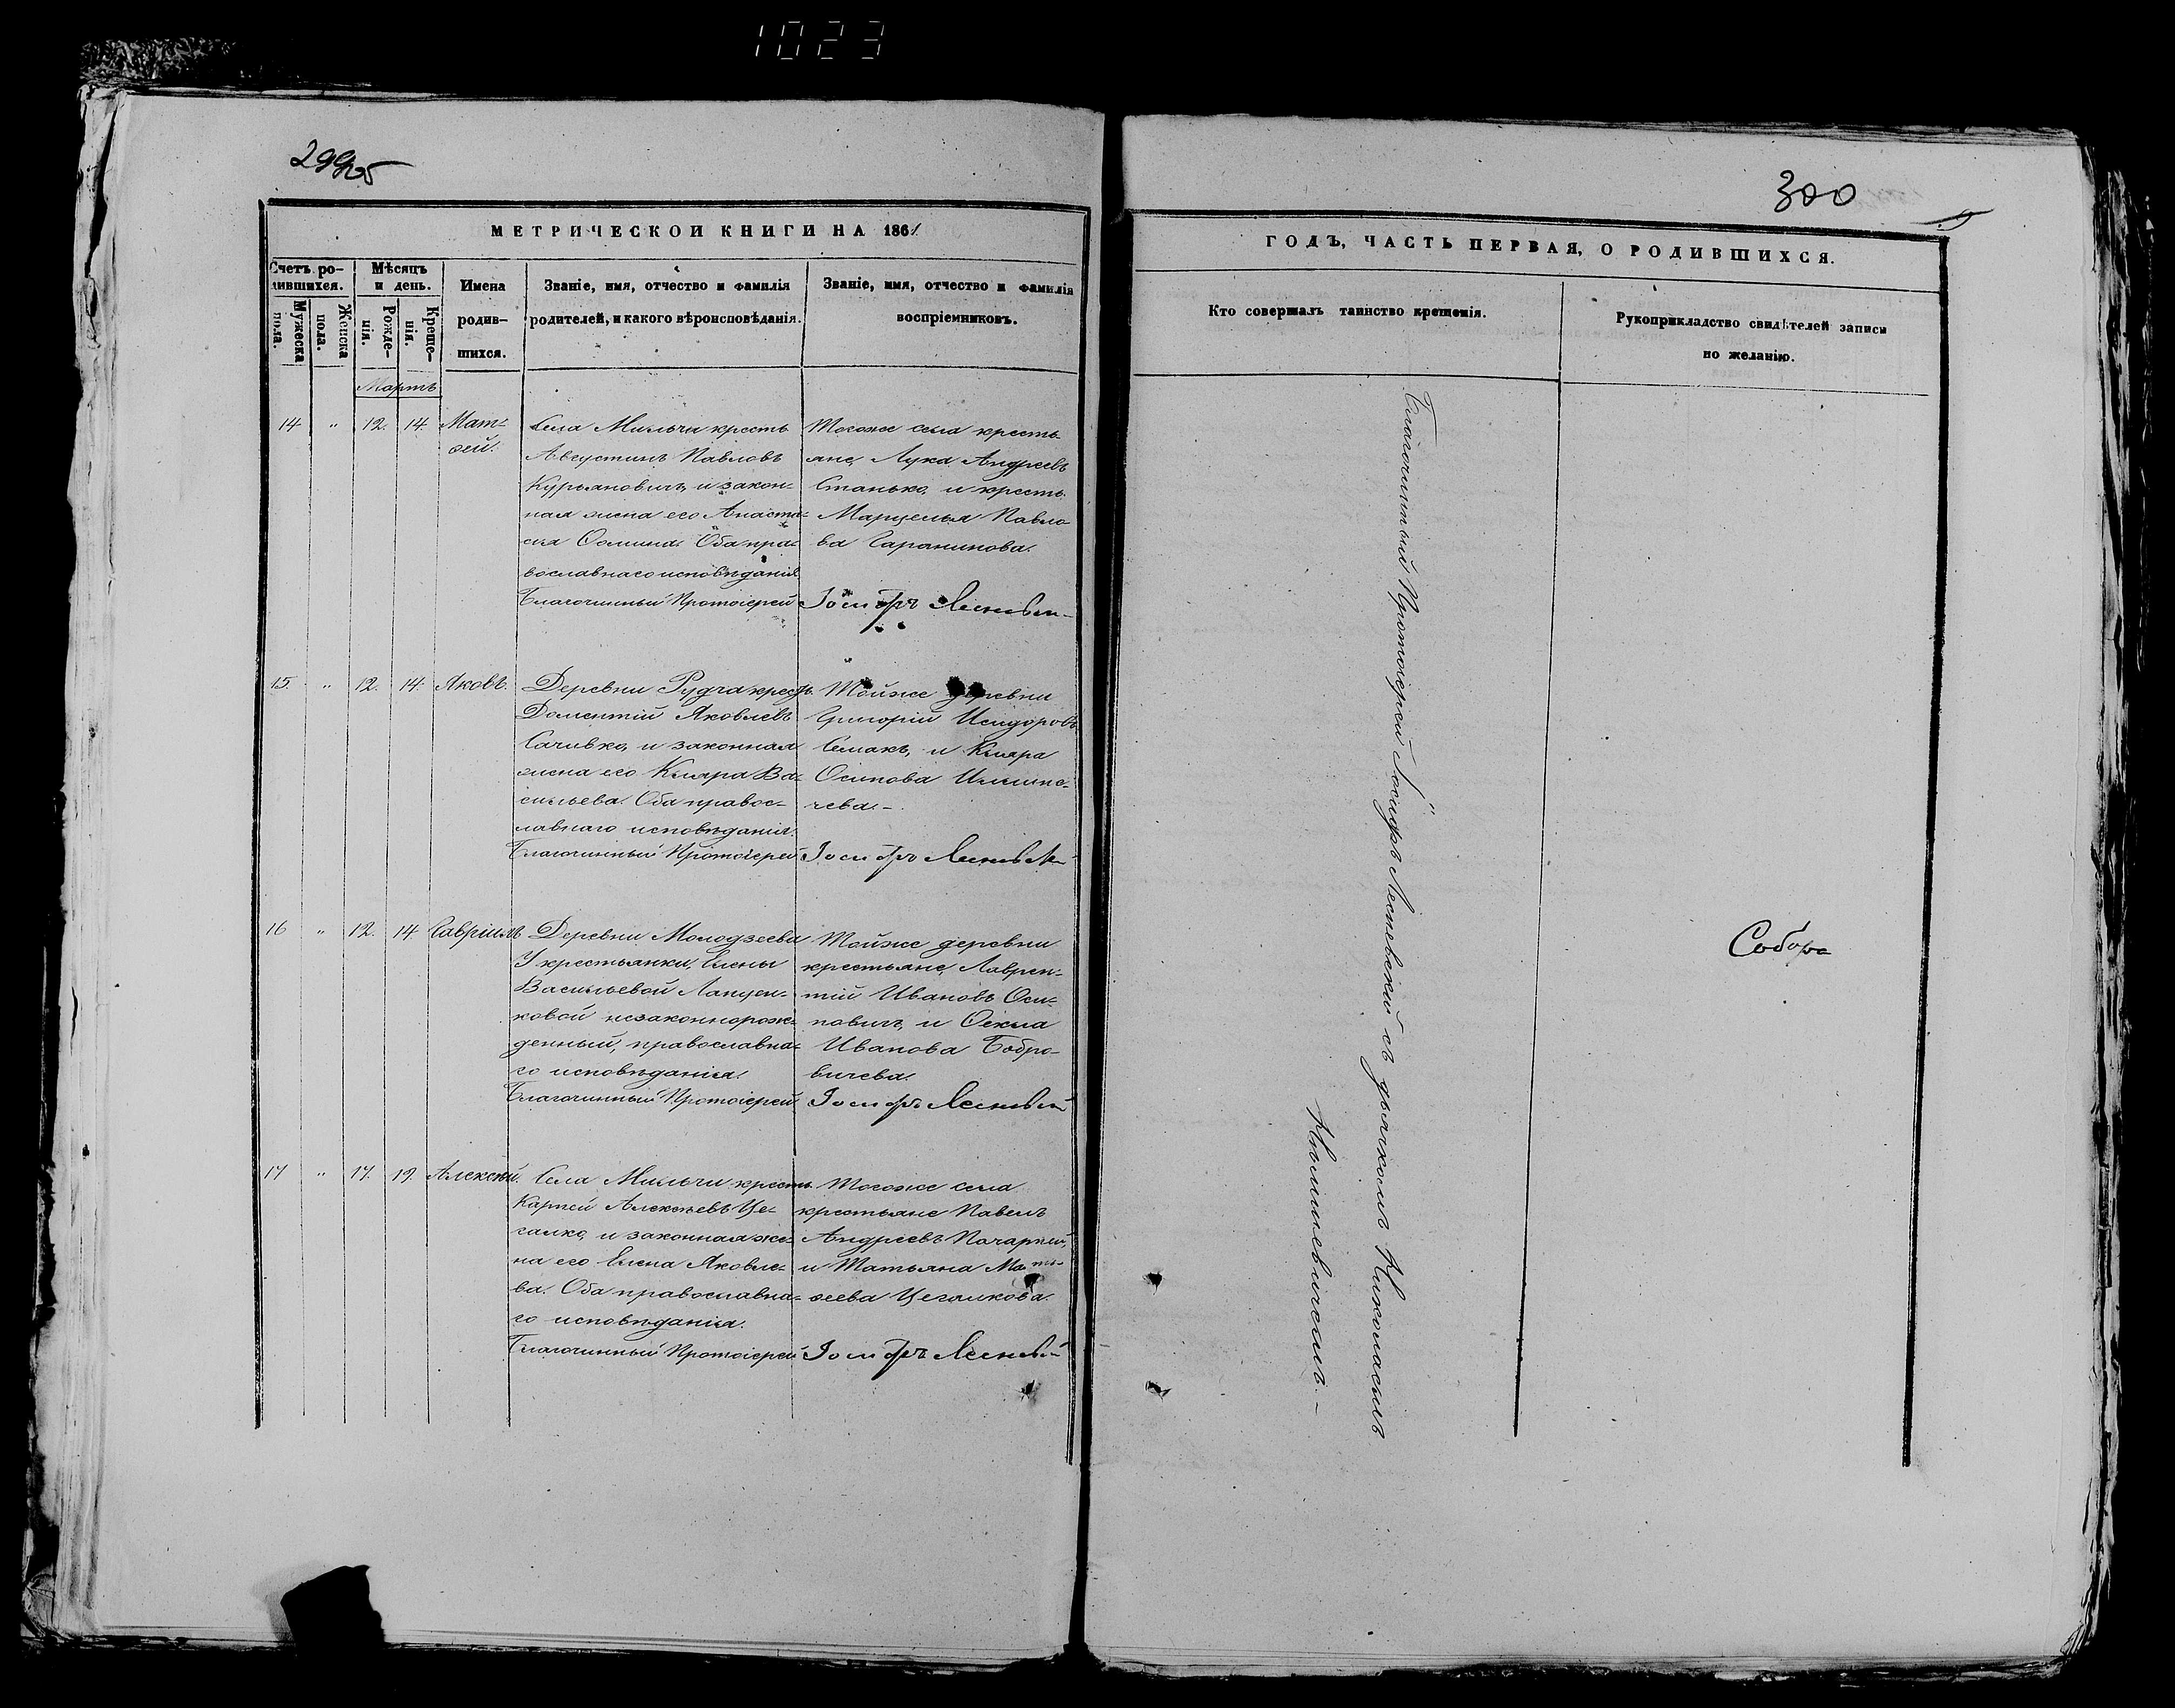 1023
300
МЕТРИЧЕСКОЙ КНИГИ НА 1861
Счетъ ро-
дившихся.
Мужеска пола.
Женска пола.
Мѣсяцъ
и день.
Рожде-
нія.
Креще-
нія.
Имена
родив-
шихся.
Званіе, имя, отчество и фамилія
родителей, и какого вѣроисповѣданія.
Званіе, имя, отчество и фамилія
воспріемниковъ.
Мартъ
14 " 12. 14. Мат-
ѳей.
Села Мильчи крестъ.
Августинъ Павловъ
Курьяновичъ, и закон-
ная жена его Анаста-
сія Ѳомина. Оба пра-
вославнаго исповѣданія.
Благочинный Протоіерей
Тогоже села кресть-
яне, Лука Андреевъ
Станько, и крестъ.
Марцелья Павло-
ва
Іосифъ
15. " 12. 14. Яковъ.
Деревни Рудча крестъ.
Доментій Яковлевъ
Сачивко, и законная
жена его Кляра Ва-
сильева. Оба правос-
лавнаго исповѣданія.
Благочинный Протоіерей
Тойже деревни
Григорій Исидоровъ
Семакъ, и Кляра
Осипова
чева.-
Іосифъ
16 " 12. 14. Гавріилъ
Деревни Молодзеева
У крестьянки, Елены
Васильевой
ковой незаконнорож-
денный, православна-
го исповѣданія.
Благочинный Протоіерей
Тойже деревни
крестьяне, Лаврен-
тій Ивановъ Оси-
повичъ, и Ѳекла
Иванова Бобро-
вичева.
Іосифъ
17 " 17. 19. Алексѣй.
Села Мильчи крестъ.
Карпей Алексѣевъ Це-
галко, и законная же-
на его Елена Яковле-
ва. Оба православна-
го исповѣданія.
Благочинный Протоіерей
Тогоже села
крестьяне Павелъ
Андреевъ
и Татьяна Мат-
ѳеева Цегалкова.
Іосифъ
ГОДЪ, ЧАСТЬ ПЕРВАЯ, О РОДИВШИХСЯ.
Кто совершалъ таинство крещенія.
Рукоприкладство свидѣтелей записи
по желанію.
Благочинный Протоіерей Іосифъ Лесневскій съ дьячкомъ Николаемъ
Собора